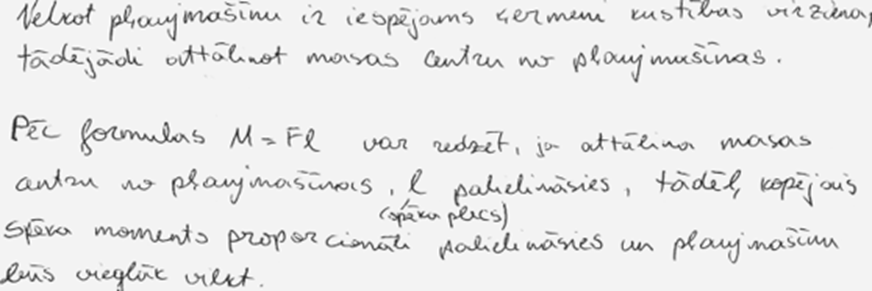 Velkot pļaujmašīnu ir iespējams ķermeni kustības virzienā,
tādējādi attālinot masas centru no pļaujmašīnas.
Pēc formulas M = Fl var redzēt, ja attālina masas
centru no pļaujmašīnas, l palielināsies, tādēļ, kopējais
(spēka plecs)
spēka moments proporcionāli palielināsies un pļaujmašīnu
būs vieglāk vilkt.